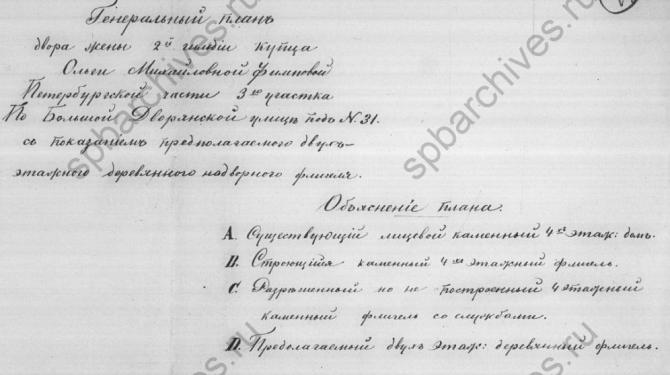 Генеральный планъ
двора жены 2й гильдіи купца
Ольги Михайловной Филиповой
Петербургской части 3го участка
По Большой Дворянской улицѣ подъ N. 31.
съ показаніемъ предполагаемого двухъ-
этажного деревянного надворного флигеля.
Объясненіе плана.
A. Существующій лицевой каменный 4хъ этаж: домъ.
B. Строющійся каменный 4хъ этажный флигель.
C. Разрѣшенный но не построенный 4 этажный
каменный флигель со службами.
D. Предполагаемый двухъ этаж: деревянный флигель.
spbarchives.ru
spbarchives.ru